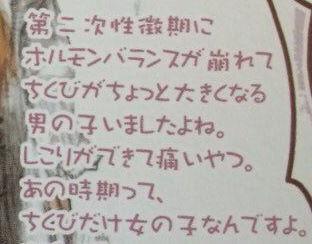 第二次性徴期に
ホルモンバランスが崩れて
ちくびがちょっと大きくなる
男の子いましたよね。
しこりができて痛いやつ。
あの時期って、
ちくびだけ女の子なんですよ。